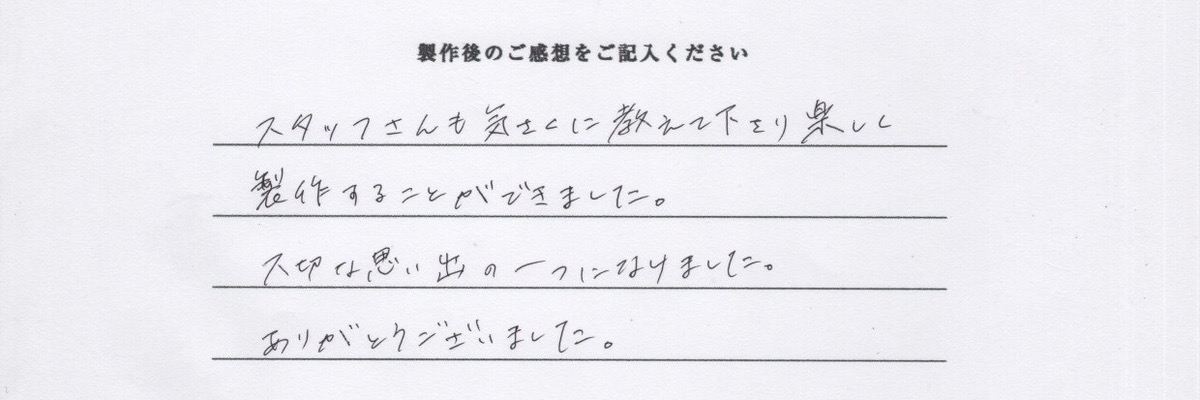 製作後のご感想をご記入ください
スタッフさんも気さくに教えて下さり楽しく
製作することができました。
大切な思い出の一つになりました。
ありがとうございました。